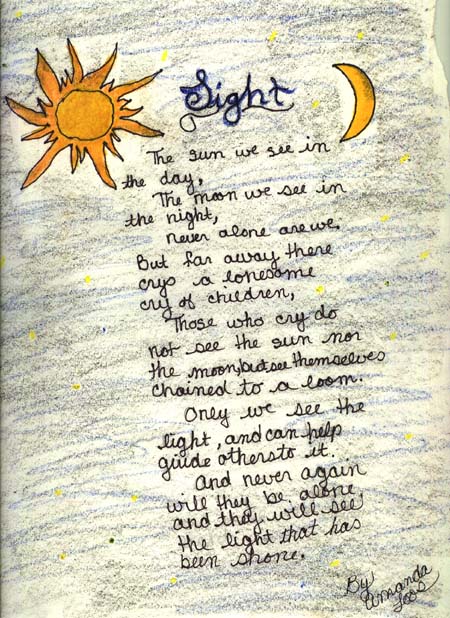 Sight
The sun we see in
the day,
The moon we see in
the night,
never alone are we.
But far away there
crys a lonesome
cry of children,
Those who cry do
not see the sun nor
the moon, but see themselves
chained to a loom.
Only we see the
light, and can help
guide others to it.
And never again
will they be alone,
and they will see
the light that has
been shone.
By
Amanda
Loos